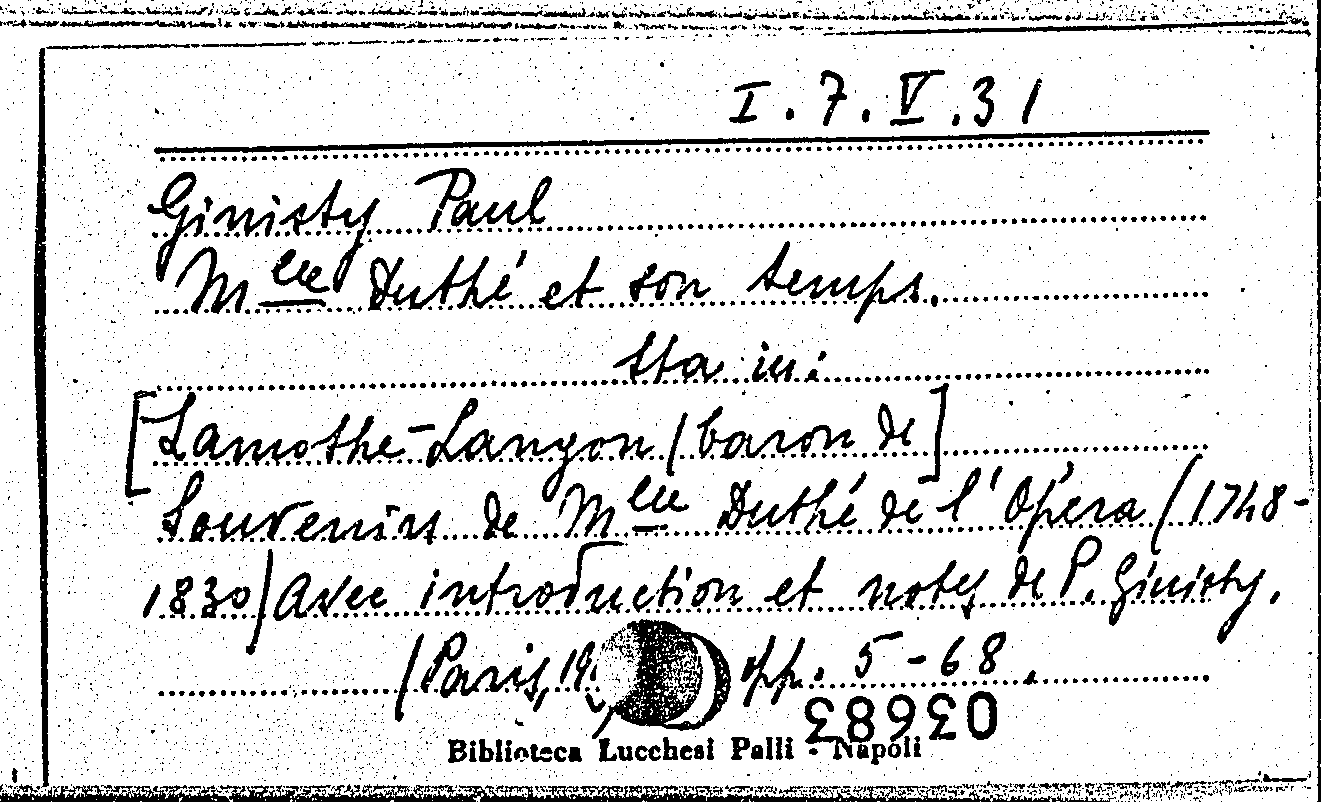 I. 7. V. 31
Ginisty Paul
Mlle Duthé et son temps.
Sta in:
[Lamothe-Langon (baron de]
Souvenirs de Mlle Duthé de l'Opéra (1748-
1830) Avec introduction et notes de P. Ginisty.
(Paris, pp. 5-68.
03683
Biblioteca Lucchesi Palli - Napoli